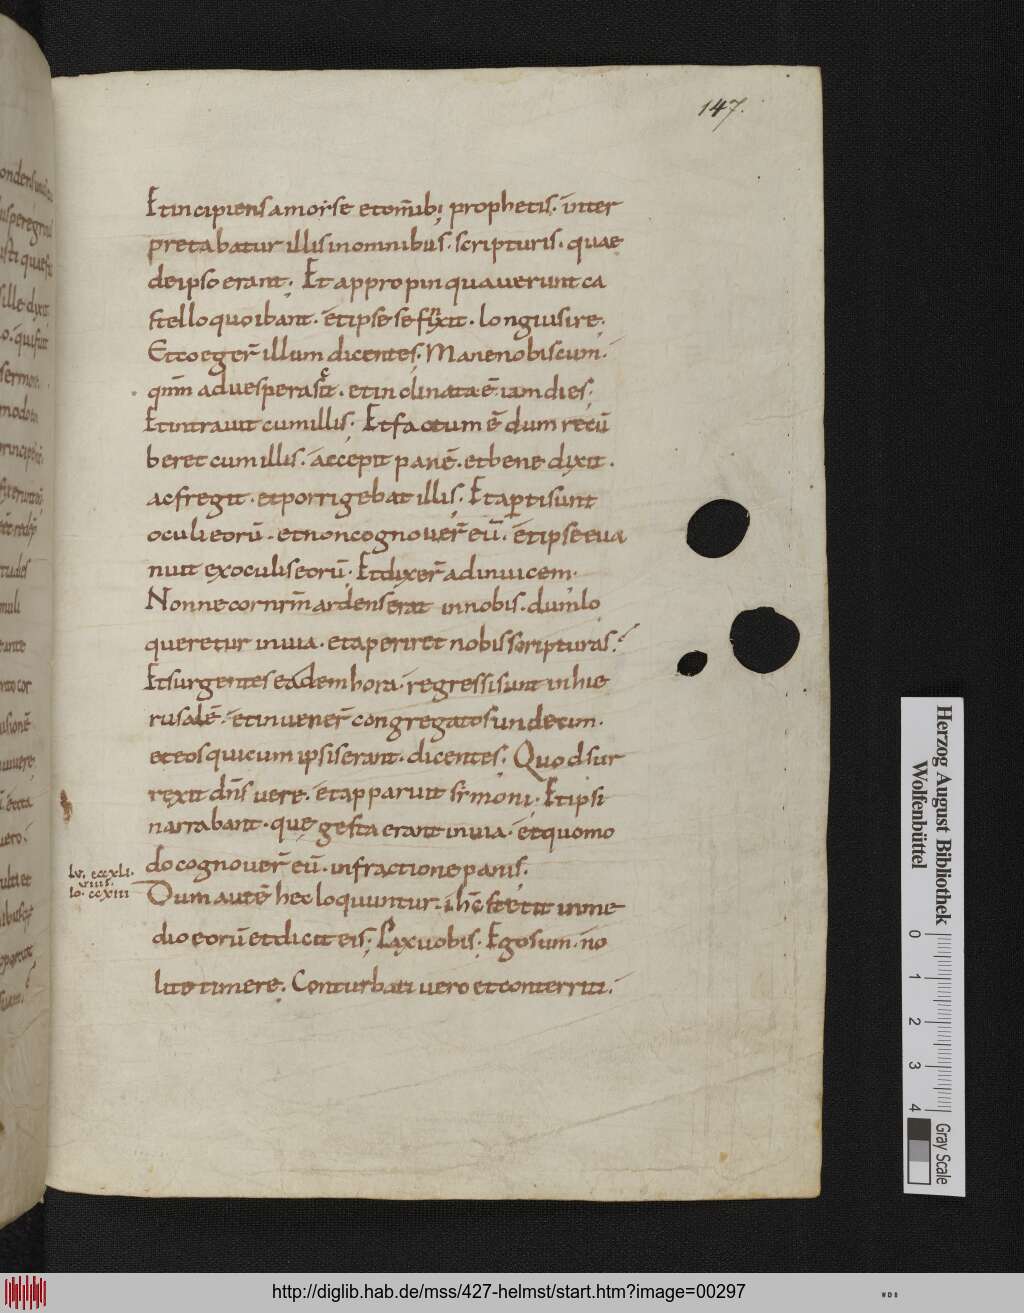 147.
Et incipiens a moyse et om̄ib; prophetis. inter
pretabatur illis in omnibus. scripturis. quae
de ipso erant. Et appropinquauerunt ca
stello quo ibant. et ipse se finxit. longius ire.
Et coeger̄ illum dicentes. Mane nobiscum.
qm̄ aduesperascit. et inclinata ē iam dies.
Et intrauit cum illis. Et factum ē dum recū
beret cum illis. accepit panē. et benedixit.
ac fregit. et porrigebat illis. Et aꝑti sunt
oculi eorū. et non cognouer̄ eū. et ipse eua
nuit ex oculis eorū. Et dixer̄ ad inuicem.
Nonne cor nr̄m ardens erat in nobis. dum lo
queretur in uia. et aperiret nobis scripturas?
Et surgentes eadem hora. regressi sunt in hie
rusalē. et inuener̄ congregatos undecim.
et eos qui cum ipsis erant. dicentes. Quod sur
rexit dn̄s uere. et apparuit simoni. Et ipsi
narrabant. quę gesta erant in uia. et quomo
do cognouer̄ eū. in fractione panis.
lv. cccxli.
uiiii.
Io. ccxiii
Dum autē hec loquuntur. ih̄c stetit in me
dio eorū et dicit eis. Pax uobis. Ego sum. no
lite timere. Conturbati uero et conterriti.
Herzog August Bibliothek
Wolfenbüttel
0 1 2 3 4
Gray Scale
http://diglib.hab.de/mss/427-helmst/start.htm?image=00297